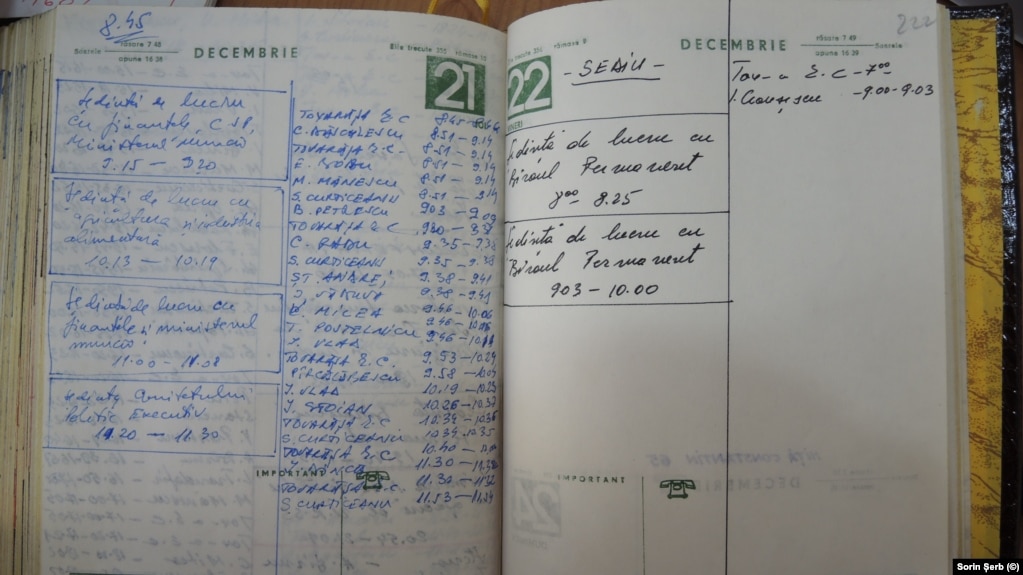 8.45
Soarele răsare 7 48
apune 16 38
DECEMBRIE
Zile trecute 355 rămase 10
21
Ședință de lucru
cu finanțele, CSP,
Ministerul muncii
9.15 — 9.20
Ședință de lucru cu
agricultura și industria
alimentară
10.13 — 10.19
Ședință de lucru cu
finanțele și ministerul
muncii
11.00 — 11.08
Ședința Comitetului
Politic Executiv
11.20 — 11.30
TOVARĂȘA E.C 8.45 -
C. DĂSCĂLESCU 8.51 - 9.14
TOVARĂȘA E.C. 8.51 - 9.14
E. BOBU 8.51 - 9.14
M. MĂNESCU 8.51 - 9.14
S. CURTICEANU 8.51 - 9.14
B. PETRESCU 903 - 909
TOVARĂȘA E C 930 -
C. RADU 9.35 - 9.38
S. CURTICEANU 9.35 - 9.38
ȘT. ANDREI 9.38 - 9.41
9.38 - 9.41
V. MILEA 9.46 - 10.06
T. POSTELNICU 9.46 - 10.06
I. VLAD 9.46 -
TOVARĂȘA E.C. 9.53 - 10.29
9.58 -
I. VLAD 10.19 -
I. STOIAN 10.26 - 10.32
TOVARĂȘA E C 10.34 -
S. CURTICEANU 10.34 - 10.35
TOVARĂȘA E C 10.40 -
11.30 -
TOVARĂȘA E.C. 11.30 - 11.32
S. CURTICEANU 11.53 - 11.54
IMPORTANT
Zile trecute 356 rămase 9
DECEMBRIE
răsare 7 49
apune 16 39
Soarele
222
22
- SEDIU -
Ședință de lucru cu
Biroul Permanent
8⁰⁰ 8.25
Ședință de lucru cu
Biroul Permanent
903 - 10.00
Tov-a E.C - 7⁰⁰
I. Ceaușescu - 9.00 - 9.03
IMPORTANT
Sorin Șerb (©)